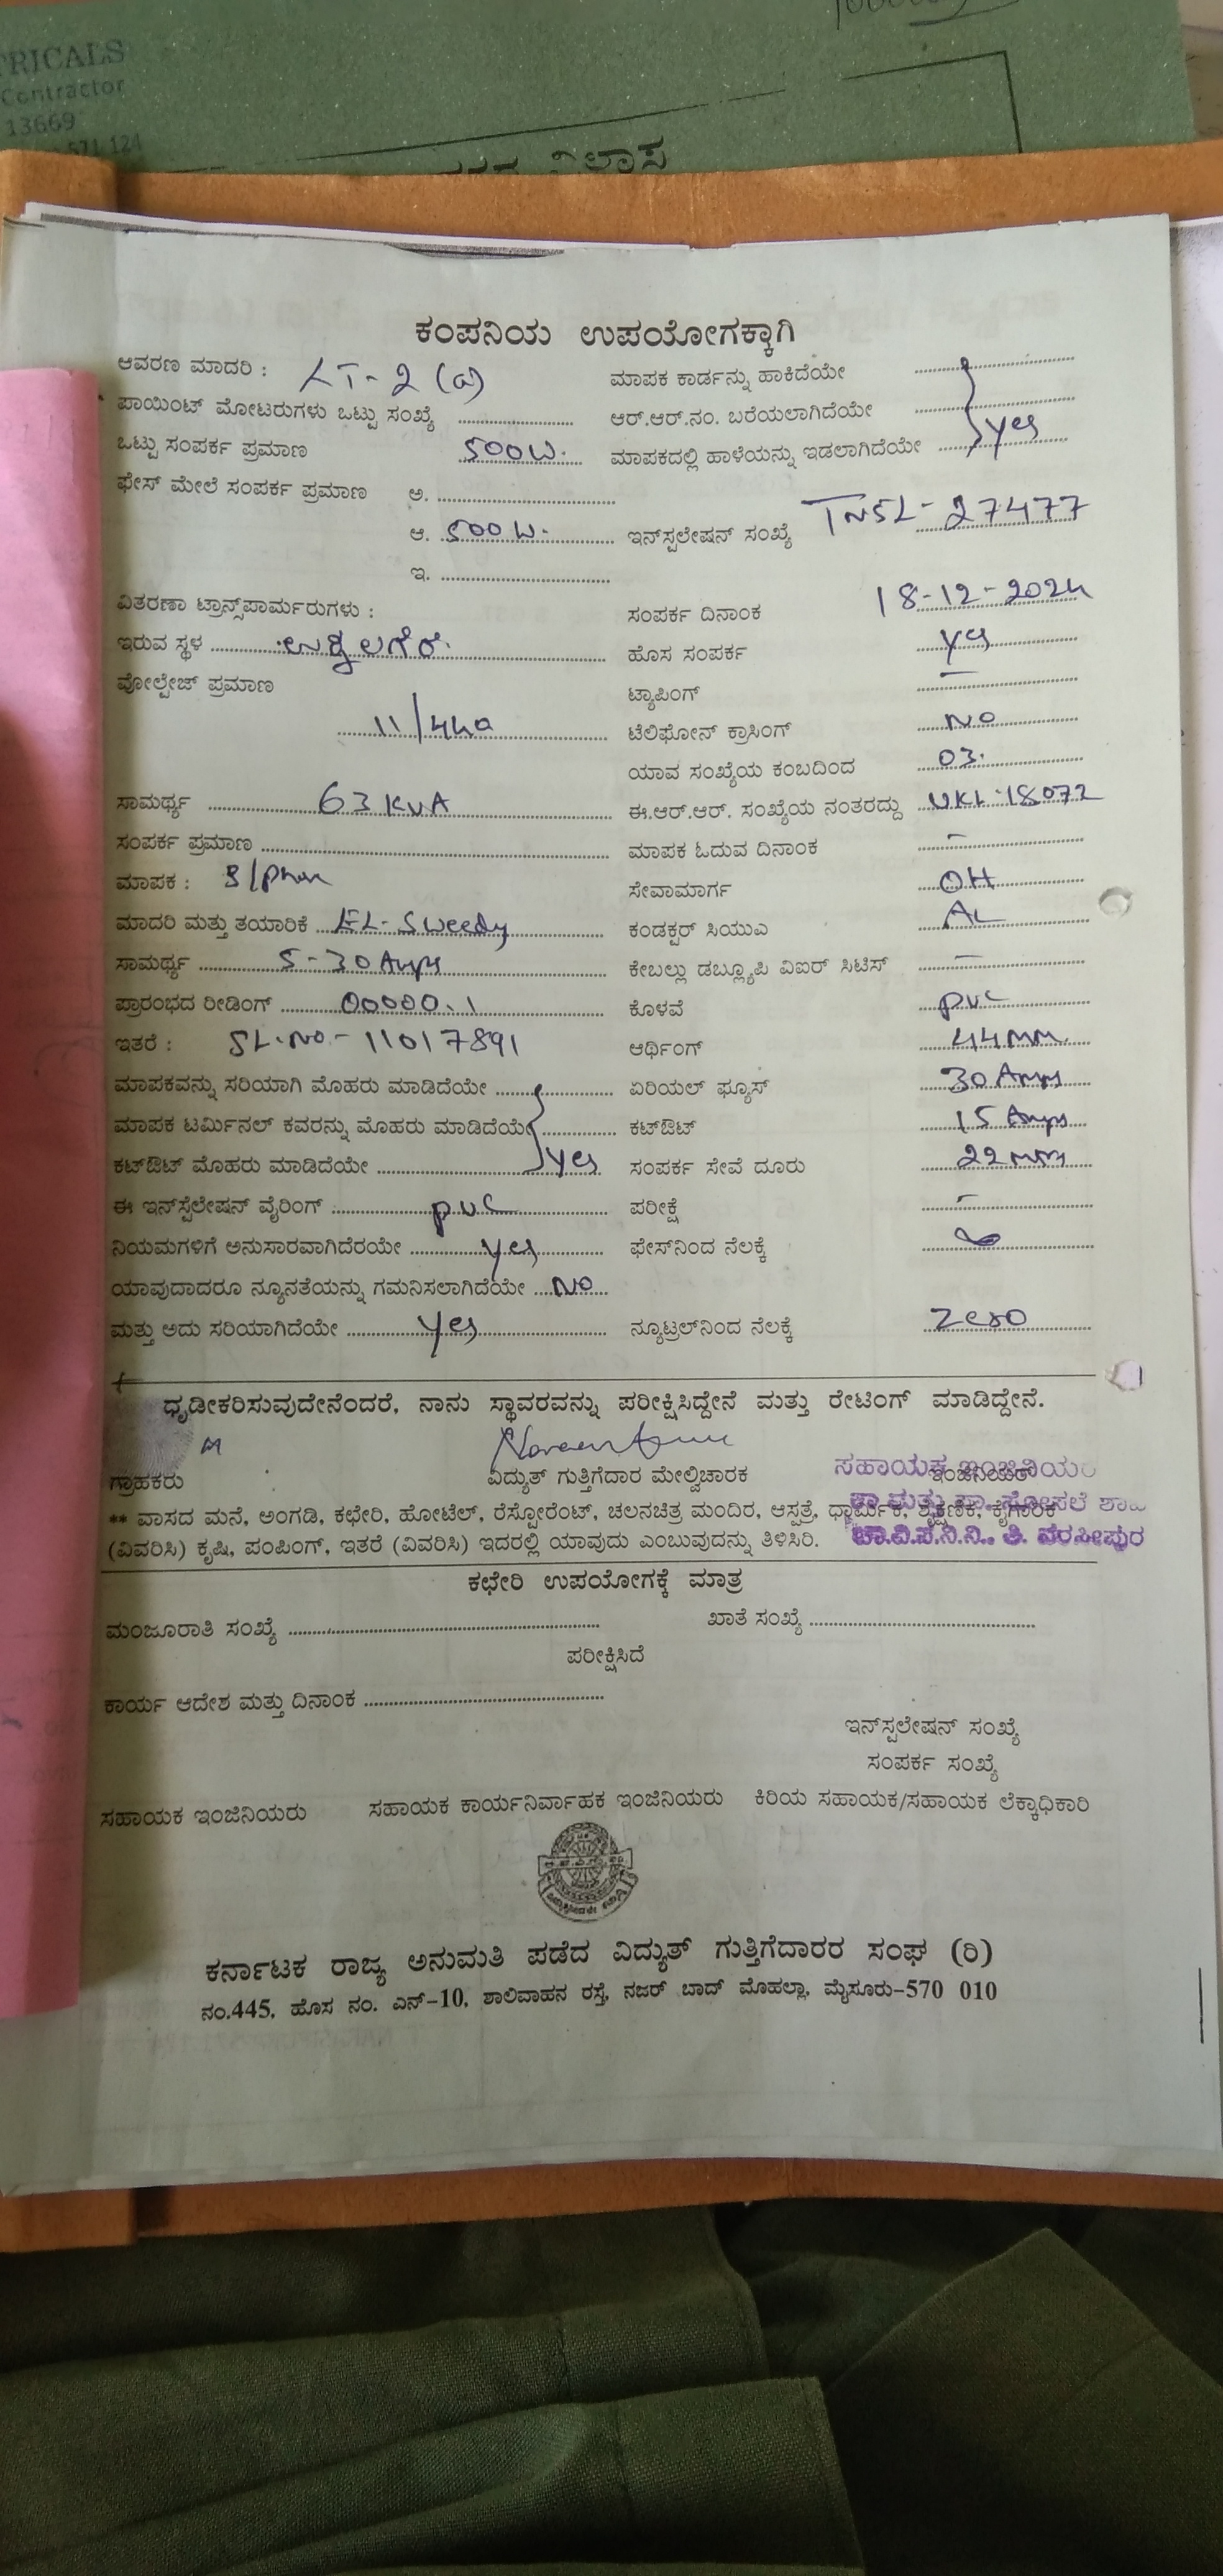 TRICALS
Contractor
13669
571 124
ವಿಲಾಸ
ಕಂಪನಿಯ ಉಪಯೋಗಕ್ಕಾಗಿ
ಆವರಣ ಮಾದರಿ : LT-2 (a) ಮಾಪಕ ಕಾರ್ಡನ್ನು ಹಾಕಿದೆಯೇ
ಪಾಯಿಂಟ್ ಮೋಟರುಗಳು ಒಟ್ಟು ಸಂಖ್ಯೆ ಆರ್.ಆರ್.ನಂ. ಬರೆಯಲಾಗಿದೆಯೇ yes
ಒಟ್ಟು ಸಂಪರ್ಕ ಪ್ರಮಾಣ 500W. ಮಾಪಕದಲ್ಲಿ ಹಾಳೆಯನ್ನು ಇಡಲಾಗಿದೆಯೇ
ಫೇಸ್ ಮೇಲೆ ಸಂಪರ್ಕ ಪ್ರಮಾಣ ಅ.
ಆ. 500 W. ಇನ್‌ಸ್ಪಲೇಷನ್ ಸಂಖ್ಯೆ TNSL-27477
ಇ.
ವಿತರಣಾ ಟ್ರಾನ್ಸ್‌ಪಾರ್ಮರುಗಳು : ಸಂಪರ್ಕ ದಿನಾಂಕ 18-12-2024
ಇರುವ ಸ್ಥಳ ಉಕ್ಕಲಗೆರೆ. ಹೊಸ ಸಂಪರ್ಕ yes
ವೋಲ್ಟೇಜ್ ಪ್ರಮಾಣ ಟ್ಯಾಪಿಂಗ್ —
11/440 ಟೆಲಿಫೋನ್ ಕ್ರಾಸಿಂಗ್ NO
ಯಾವ ಸಂಖ್ಯೆಯ ಕಂಬದಿಂದ 03.
ಸಾಮರ್ಥ್ಯ 63 KVA ಈ.ಆರ್.ಆರ್. ಸಂಖ್ಯೆಯ ನಂತರದ್ದು UKL-18072
ಸಂಪರ್ಕ ಪ್ರಮಾಣ ಮಾಪಕ ಓದುವ ದಿನಾಂಕ —
ಮಾಪಕ : S/phase ಸೇವಾಮಾರ್ಗ OH
ಮಾದರಿ ಮತ್ತು ತಯಾರಿಕೆ EL-Sweedy ಕಂಡಕ್ಟರ್ ಸಿಯುಎ AL
ಸಾಮರ್ಥ್ಯ 5-30 Amps ಕೇಬಲ್ಲು ಡಬ್ಲ್ಯೂಪಿ ವಿಐರ್ ಸಿಟಿಸ್ —
ಪ್ರಾರಂಭದ ರೀಡಿಂಗ್ 00000.1 ಕೊಳವೆ pvc
ಇತರೆ : SL.NO.-11017891 ಆರ್ಥಿಂಗ್ 44mm.
ಮಾಪಕವನ್ನು ಸರಿಯಾಗಿ ಮೊಹರು ಮಾಡಿದೆಯೇ ಏರಿಯಲ್ ಫ್ಯೂಸ್ 30 Amps
ಮಾಪಕ ಟರ್ಮಿನಲ್ ಕವರನ್ನು ಮೊಹರು ಮಾಡಿದೆಯೇ ಕಟ್‌ಔಟ್ 15 Amps
ಕಟ್‌ಔಟ್ ಮೊಹರು ಮಾಡಿದೆಯೇ yes ಸಂಪರ್ಕ ಸೇವೆ ದೂರು 22 mm
ಈ ಇನ್‌ಸ್ಪೆಲೇಷನ್ ವೈರಿಂಗ್ pvc ಪರೀಕ್ಷೆ —
ನಿಯಮಗಳಿಗೆ ಅನುಸಾರವಾಗಿದೆರಯೇ yes ಫೇಸ್‌ನಿಂದ ನೆಲಕ್ಕೆ ∞
ಯಾವುದಾದರೂ ನ್ಯೂನತೆಯನ್ನು ಗಮನಿಸಲಾಗಿದೆಯೇ NO
ಮತ್ತು ಅದು ಸರಿಯಾಗಿದೆಯೇ yes ನ್ಯೂಟ್ರಲ್‌ನಿಂದ ನೆಲಕ್ಕೆ Zero
ಧೃಡೀಕರಿಸುವುದೇನೆಂದರೆ, ನಾನು ಸ್ಥಾವರವನ್ನು ಪರೀಕ್ಷಿಸಿದ್ದೇನೆ ಮತ್ತು ರೇಟಿಂಗ್ ಮಾಡಿದ್ದೇನೆ.
ಗ್ರಾಹಕರು ವಿದ್ಯುತ್ ಗುತ್ತಿಗೆದಾರ ಮೇಲ್ವಿಚಾರಕ ಇಂಜಿನಿಯರ್
ಸಹಾಯಕ ಇಂಜಿನಿಯರ
** ವಾಸದ ಮನೆ, ಅಂಗಡಿ, ಕಛೇರಿ, ಹೋಟೆಲ್, ರೆಸ್ಟೋರೆಂಟ್, ಚಲನಚಿತ್ರ ಮಂದಿರ, ಆಸ್ಪತ್ರೆ, ಧಾರ್ಮಿಕ, ಶೈಕ್ಷಣಿಕ, ಕೈಗಾರಿಕೆ
(ವಿವರಿಸಿ) ಕೃಷಿ, ಪಂಪಿಂಗ್, ಇತರೆ (ವಿವರಿಸಿ) ಇದರಲ್ಲಿ ಯಾವುದು ಎಂಬುವುದನ್ನು ತಿಳಿಸಿರಿ.
ಚಾ.ವಿ.ಸ.ನಿ.ನಿ., ತಿ. ನರಸೀಪುರ
ಕಛೇರಿ ಉಪಯೋಗಕ್ಕೆ ಮಾತ್ರ
ಮಂಜೂರಾತಿ ಸಂಖ್ಯೆ ಖಾತೆ ಸಂಖ್ಯೆ
ಪರೀಕ್ಷಿಸಿದೆ
ಕಾರ್ಯ ಆದೇಶ ಮತ್ತು ದಿನಾಂಕ
ಇನ್‌ಸ್ಪಲೇಷನ್ ಸಂಖ್ಯೆ
ಸಂಪರ್ಕ ಸಂಖ್ಯೆ
ಸಹಾಯಕ ಇಂಜಿನಿಯರು ಸಹಾಯಕ ಕಾರ್ಯನಿರ್ವಾಹಕ ಇಂಜಿನಿಯರು ಕಿರಿಯ ಸಹಾಯಕ/ಸಹಾಯಕ ಲೆಕ್ಕಾಧಿಕಾರಿ
ಕರ್ನಾಟಕ ರಾಜ್ಯ ಅನುಮತಿ ಪಡೆದ ವಿದ್ಯುತ್ ಗುತ್ತಿಗೆದಾರರ ಸಂಘ (ರಿ)
ನಂ.445, ಹೊಸ ನಂ. ಎನ್-10, ಶಾಲಿವಾಹನ ರಸ್ತೆ, ನಜರ್ ಬಾದ್ ಮೊಹಲ್ಲಾ, ಮೈಸೂರು-570 010